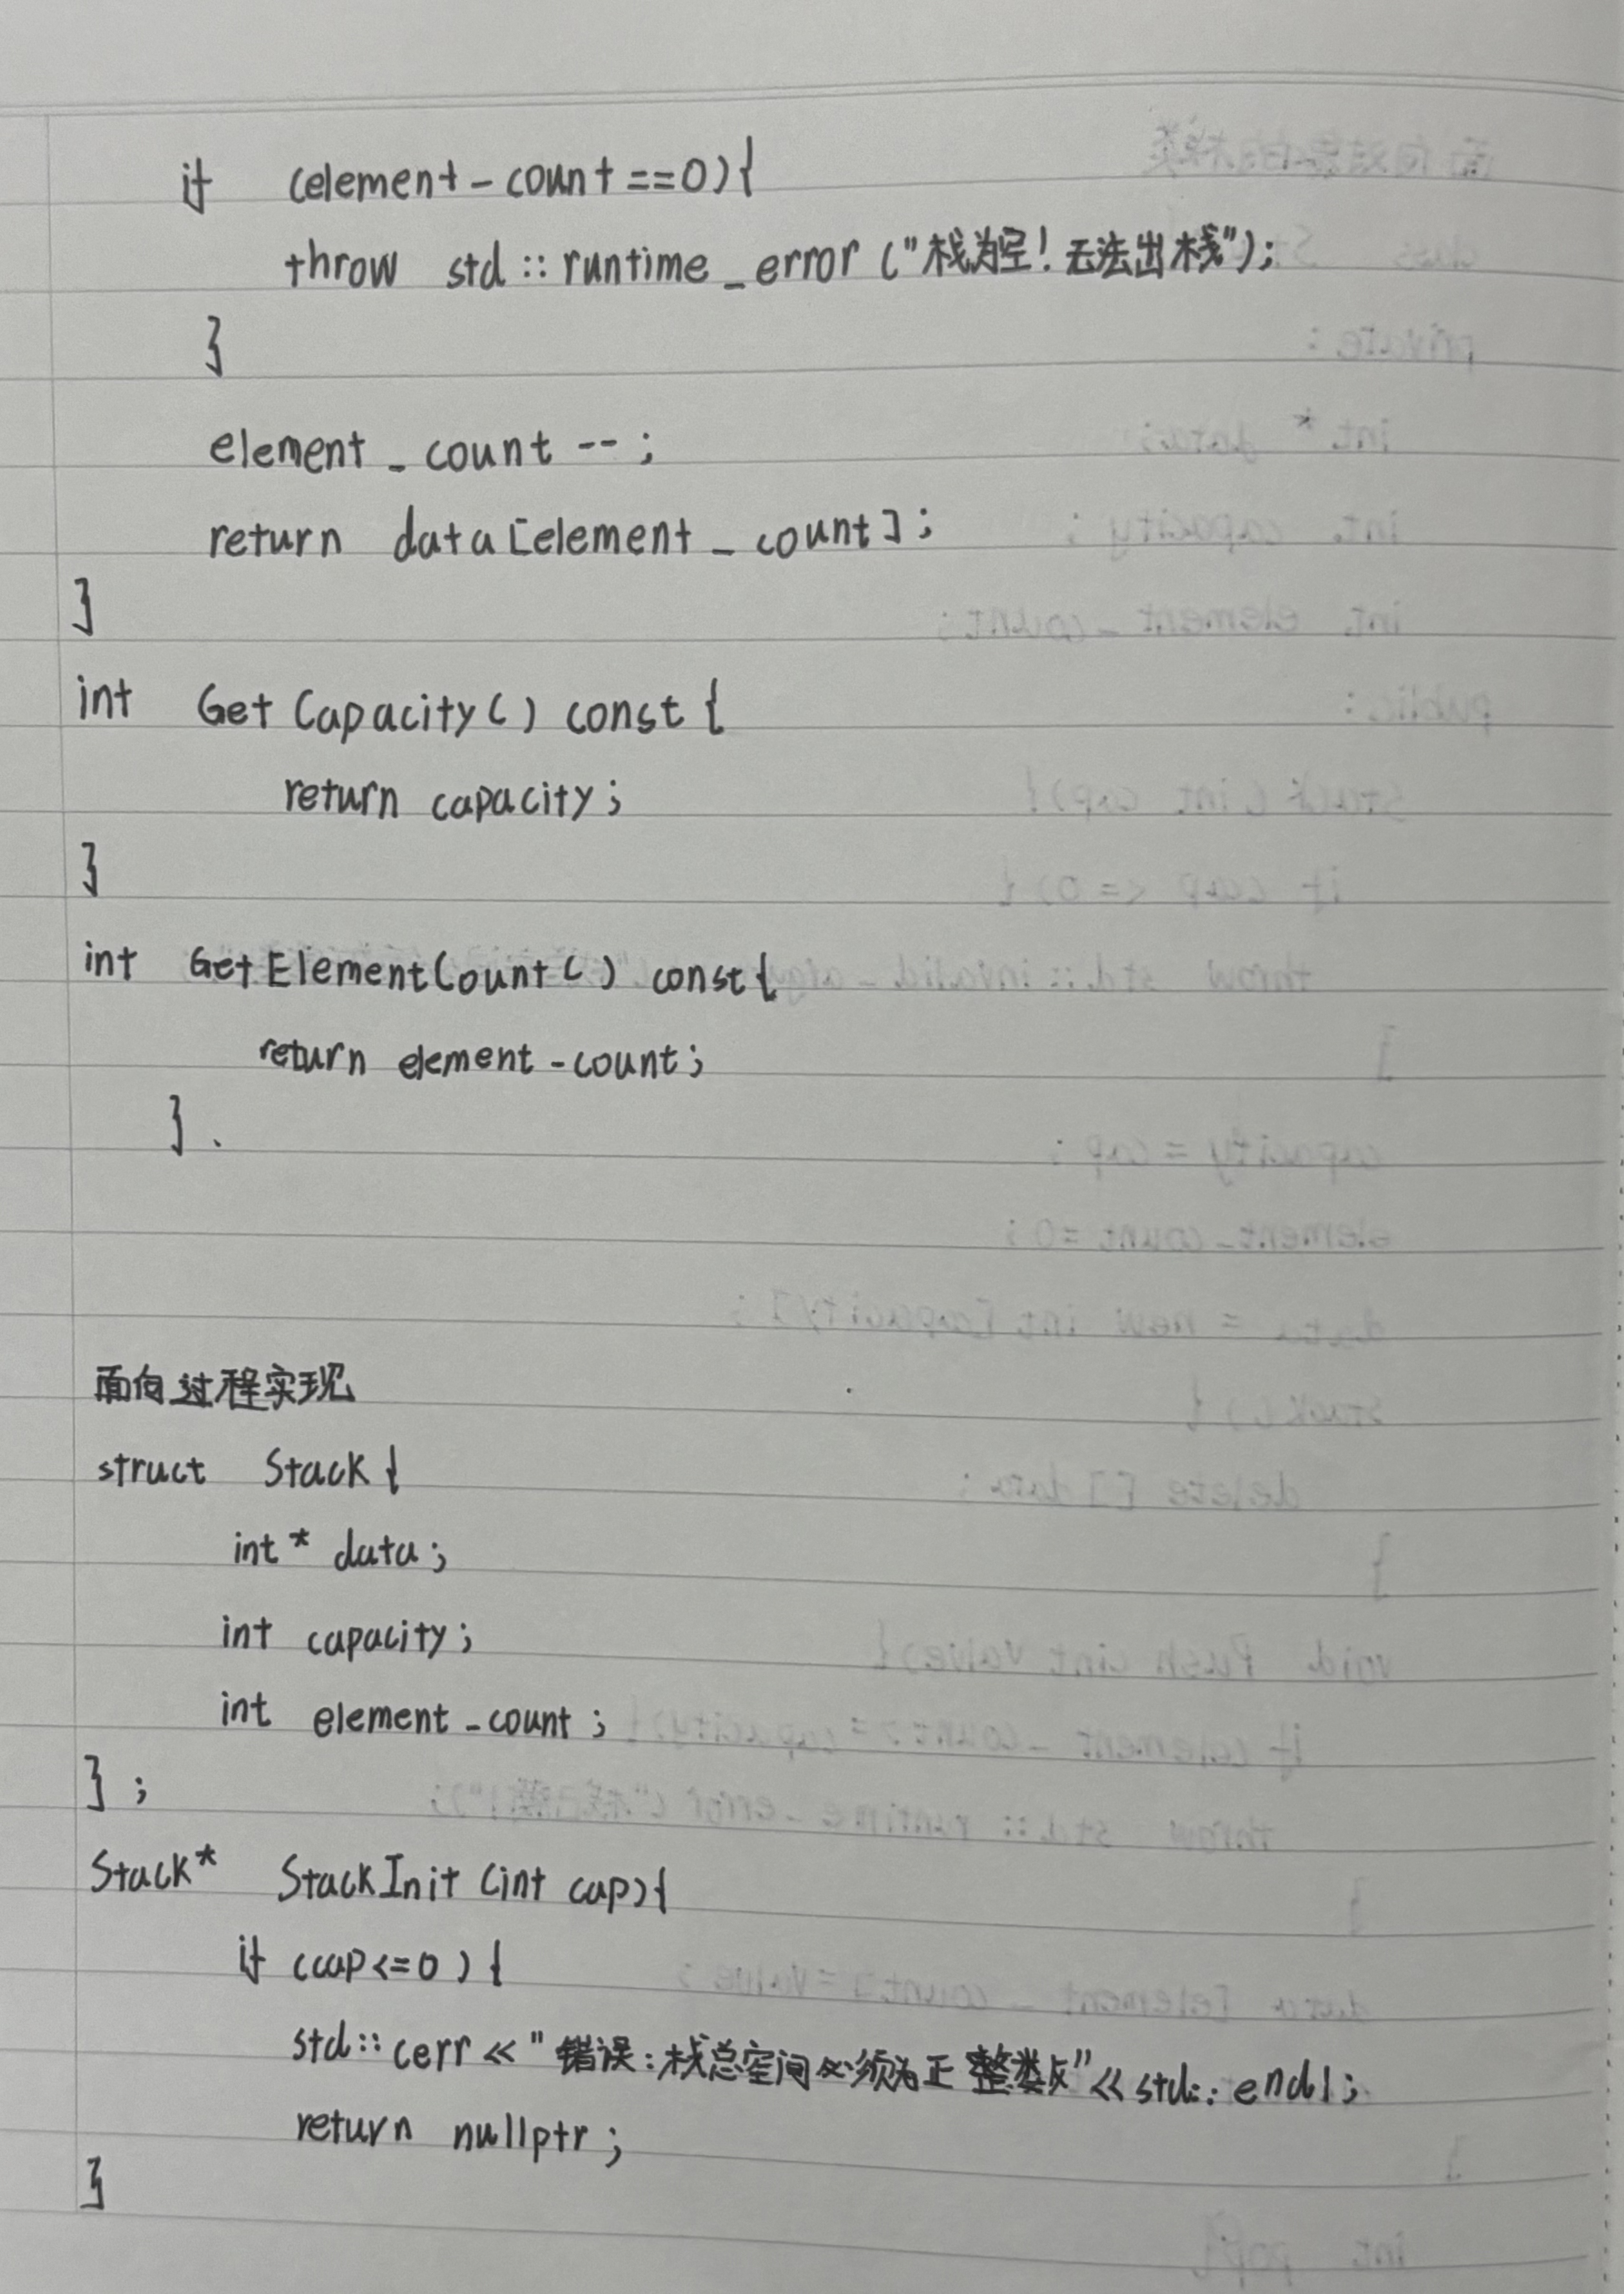 if (element_count==0){
throw std::runtime_error("栈为空!无法出栈");
}
element_count--;
return data[element_count];
}
int GetCapacity() const{
return capacity;
}
int GetElementCount() const{
return element_count;
}.
面向过程实现
struct Stack{
int* data;
int capacity;
int element_count;
};
Stack* StackInit(int cap){
if (cap<=0){
std::cerr<<"错误:栈总空间必须为正整数"<<std::endl;
return nullptr;
}